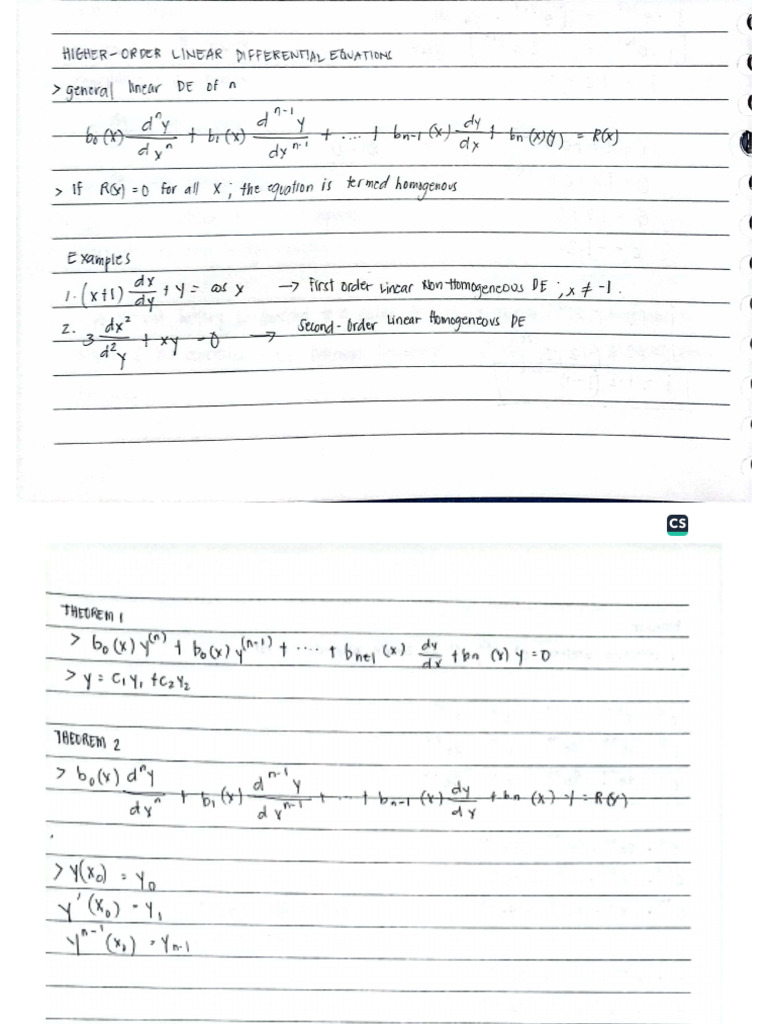 HIGHER-ORDER LINEAR DIFFERENTIAL EQUATIONS
> general linear DE of n
b₀(x) dⁿy/dxⁿ + b₁(x) dⁿ⁻¹y/dxⁿ⁻¹ + .... + bn-1 (x) dy/dx + bn (x)(y) = R(x)
> If R(x) = 0 for all x ; the equation is termed homogenous
Examples
1. (x+1) dx/dy + y = cos x → First Order Linear Non-Homogeneous DE ; x ≠ -1.
2. 3 dx²/d²y + xy = 0 → Second-Order Linear Homogeneous DE
CS
THEOREM 1
> b₀(x) y⁽ⁿ⁾ + b₀(x) y⁽ⁿ⁻¹⁾ + .... + bn+1 (x) dy/dx + bn (x) y = 0
> y = C₁y₁ + C₂y₂
THEOREM 2
> b₀(x) dⁿy/dxⁿ + b₁(x) dⁿ⁻¹y/dxⁿ⁻¹ + .... + bn-1 (x) dy/dx + bn (x) y = R(x)
> y(x₀) = y₀
y'(x₀) = y₁
yⁿ⁻¹(x₀) = yn-1